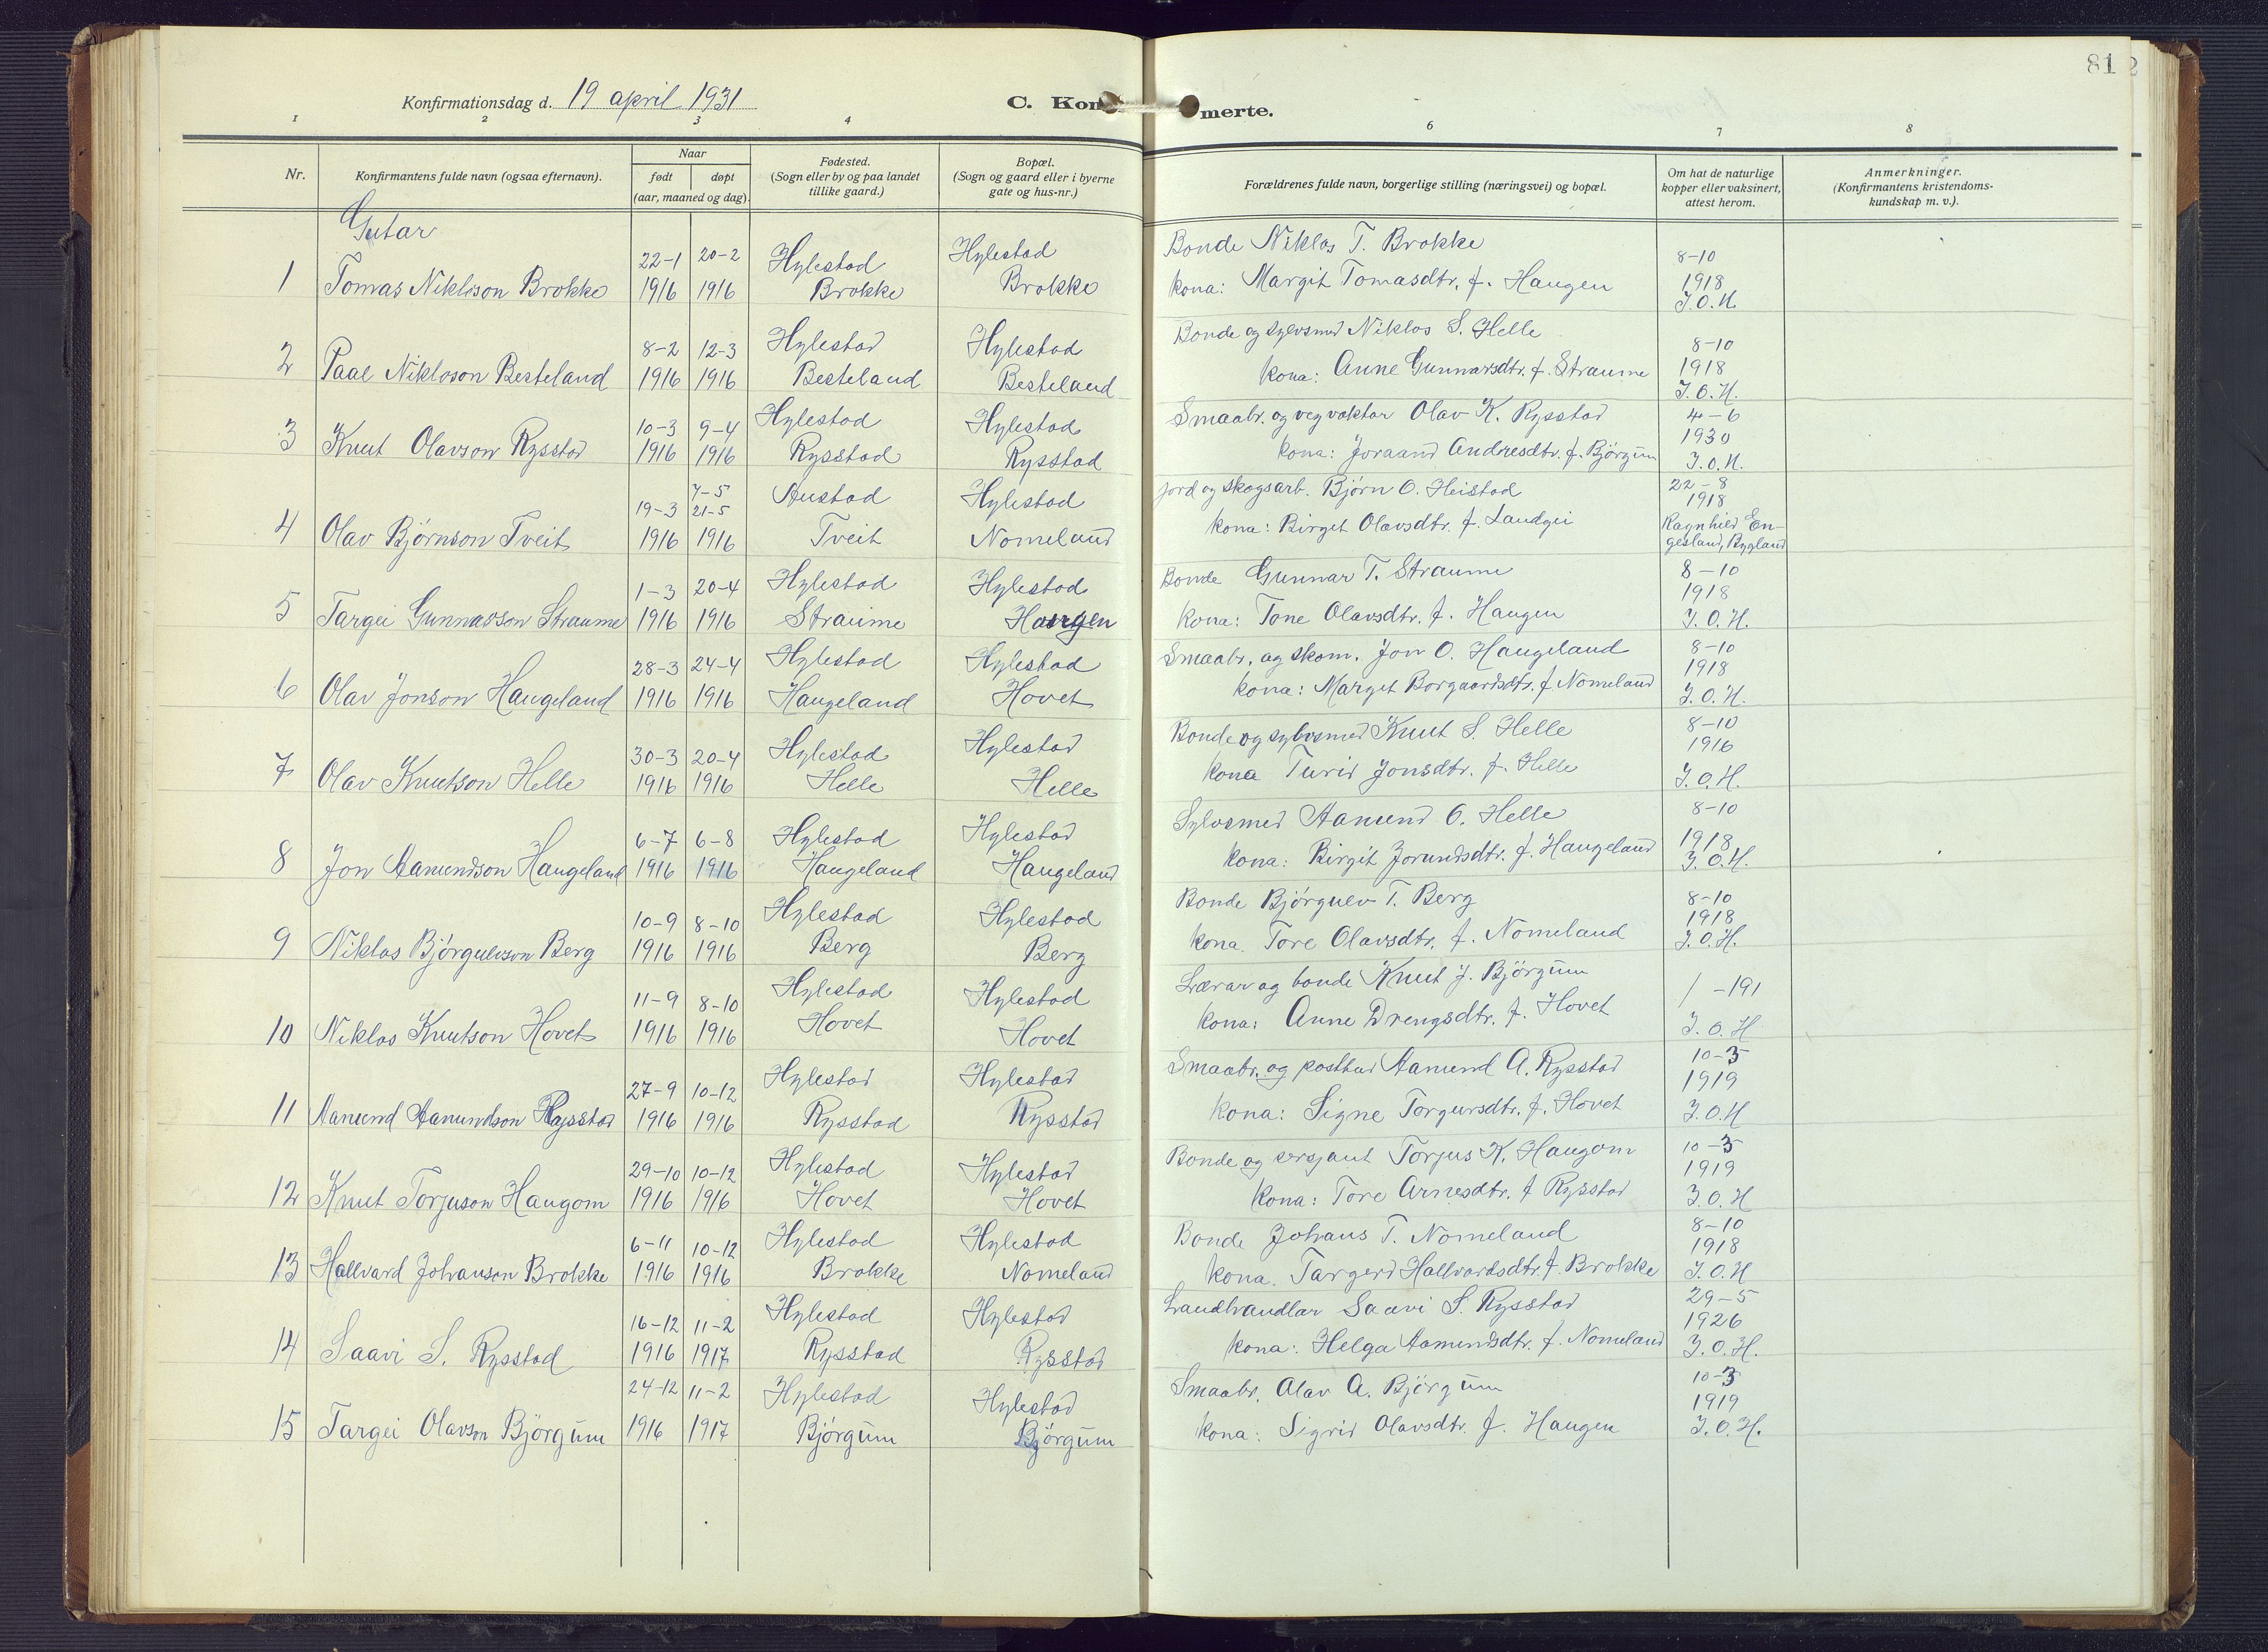 Konfirmationsdag d. 19 april 1931
C. Kon
merte.
81
2
1 2 3 4
6 7 8
Nr.
Konfirmantens fulde navn (ogsaa efternavn).
Naar
født døpt
(aar, maaned og dag).
Fødested.
(Sogn eller by og paa landet
tillike gaard.)
Bopæl.
(Sogn og gaard eller i byerne
gate og hus-nr.)
Forældrenes fulde navn, borgerlige stilling (næringsvei) og bopæl.
Om hat de naturlige
kopper eller vaksinert,
attest herom.
Anmerkninger.
(Konfirmantens kristendoms-
kundskap m. v.).
Gutar
22-1 20-2 Hylestad Hylestad Bonde Niklos T. Brokke 8-10
1 Tomas Niklosson Brokke 1916 1916 Brokke Brokke kona: Margit Tomasdtr. f. Haugen 1918
J.O.H.
8-2 12-3 Hylestad Hylestad Bonde og sylvsmed Niklos S. Helle 8-10
2 Paal Nikloson Besteland 1916 1916 Besteland Besteland kona: Anne Gunnarsdtr. f. Straume 1918
J.O.H.
10-3 9-4 Hylestad Hylestad Smaabr. og vegvaktar Olav K. Rysstad 4-6
1930
3 Knut Olavson Rysstad 1916 1916 Rysstad Rysstad kona: Joraand Andresdtr. f. Bjørgum J.O.H.
7-5
19-3 21-5 Austad Hylestad jord og skogsarb. Bjørn O. Heistad 22-8
1918
4 Olav Bjørnson Tveit 1916 1916 Tveit Nomeland kona: Birgit Olavsdtr. f. Landgei Ragnhild En-
gesland, Bygland
1-3 20-4 Hylestad Hylestad Bonde Gunnar T. Straume 8-10
1918
5 Targei Gunnarson Straume 1916 1916 Straume Haugen kona: Tone Olavsdtr. f. Haugen J.O.H.
28-3 24-4 Hylestad Hylestad Smaabr. og skom. Jon O. Haugeland 8-10
1918
6 Olav Jonson Haugeland 1916 1916 Haugeland Hovet kona: Margit Borgaardsdtr. f. Nomeland J.O.H.
30-3 20-4 Hylestad Hylestad Bonde og sylvsmed Knut S. Helle 8-10
1916
7 Olav Knutson Helle 1916 1916 Helle Helle kona Turid Jonsdtr. f. Helle J.O.H.
6-7 6-8 Hylestad Hylestad Sylvsmed Aamund O. Helle 8-10
1918
8 Jon Aamundson Haugeland 1916 1916 Haugeland Haugeland kona: Birgit Jorundsdtr. f. Haugeland J.O.H.
10-9 8-10 Hylestad Hylestad Bonde Bjørgulv T. Berg 8-10
1918
9 Niklos Bjørgulvson Berg 1916 1916 Berg Berg kona. Tore Olavsdtr. f. Nomeland J.O.H.
11-9 8-10 Hylestad Hylestad Lærar og bonde Knut J. Bjørgum / -191
10 Niklos Knutson Hovet 1916 1916 Hovet Hovet kona: Anne Drengsdtr. f. Hovet J.O.H
27-9 10-12 Hylestad Hylestad Smaabr. og postbud Aamund A. Rysstad 10-3
1919
11 Aamund Aamundson Rysstad 1916 1916 Rysstad Rysstad kona: Signe Torgursdtr. f. Hovet J.O.H
29-10 10-12 Hylestad Hylestad Bonde og sersjant Torjus K. Haugom 10-3
1919
12 Knut Torjuson Haugom 1916 1916 Hovet Hovet kona: Tore Arnesdtr. f Rysstad J.O.H
6-11 10-12 Hylestad Hylestad Bonde Johans T. Nomeland 8-10
1918
13 Hallvard Johanson Brokke 1916 1916 Brokke Nomeland kona. Targerd Hallvardsdtr. f. Brokke J.O.H
16-12 11-2 Hylestad Hylestad Landhandlar Saavi S. Rysstad 29-5
1926
14 Saavi S. Rysstad 1916 1917 Rysstad Rysstad kona: Helga Aamundsdtr. f. Nomeland J.O.H.
24-12 11-2 Hylestad Hylestad Smaabr. Olav A. Bjørgum 10-3
1919
15 Targei Olavson Bjørgum 1916 1917 Bjørgum Bjørgum kona: Sigrid Olavsdtr. f. Haugen J.O.H.